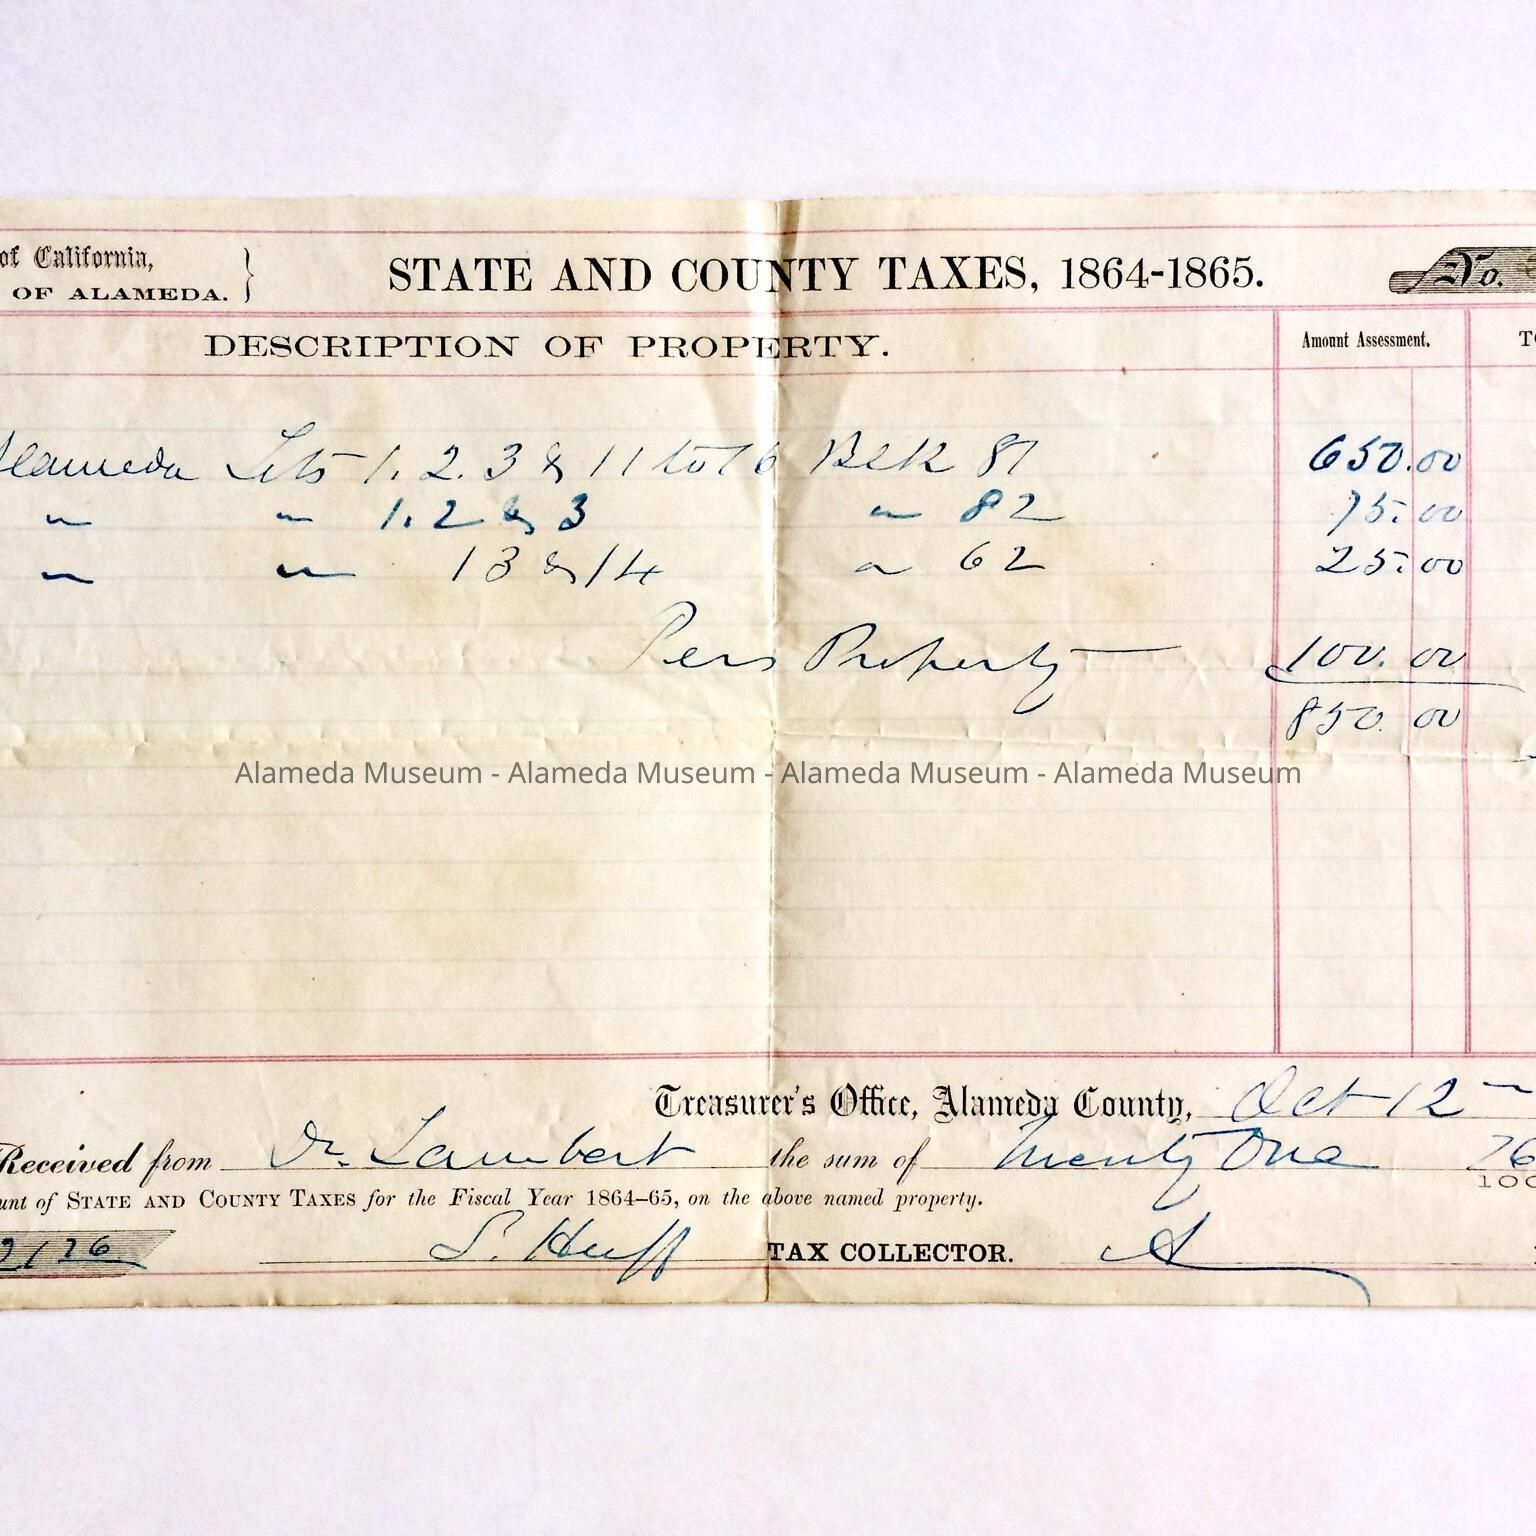 of California,
OF ALAMEDA.
STATE AND COUNTY TAXES, 1864-1865.
No.
DESCRIPTION OF PROPERTY.
Amount Assessment.
Alameda Lots 1. 2. 3 & 11 to 16 Blk 81 650.00
" " 1. 2 & 3 " 82 75.00
" " 13 & 14 " 62 25.00
Pers Property 100.00
850.00
Alameda Museum - Alameda Museum - Alameda Museum - Alameda Museum
Treasurer's Office, Alameda County, Oct 12
Received from Dr. Lambert the sum of Twenty One 26
100
unt of STATE AND COUNTY TAXES for the Fiscal Year 1864-65, on the above named property.
2126 S. Huff TAX COLLECTOR.